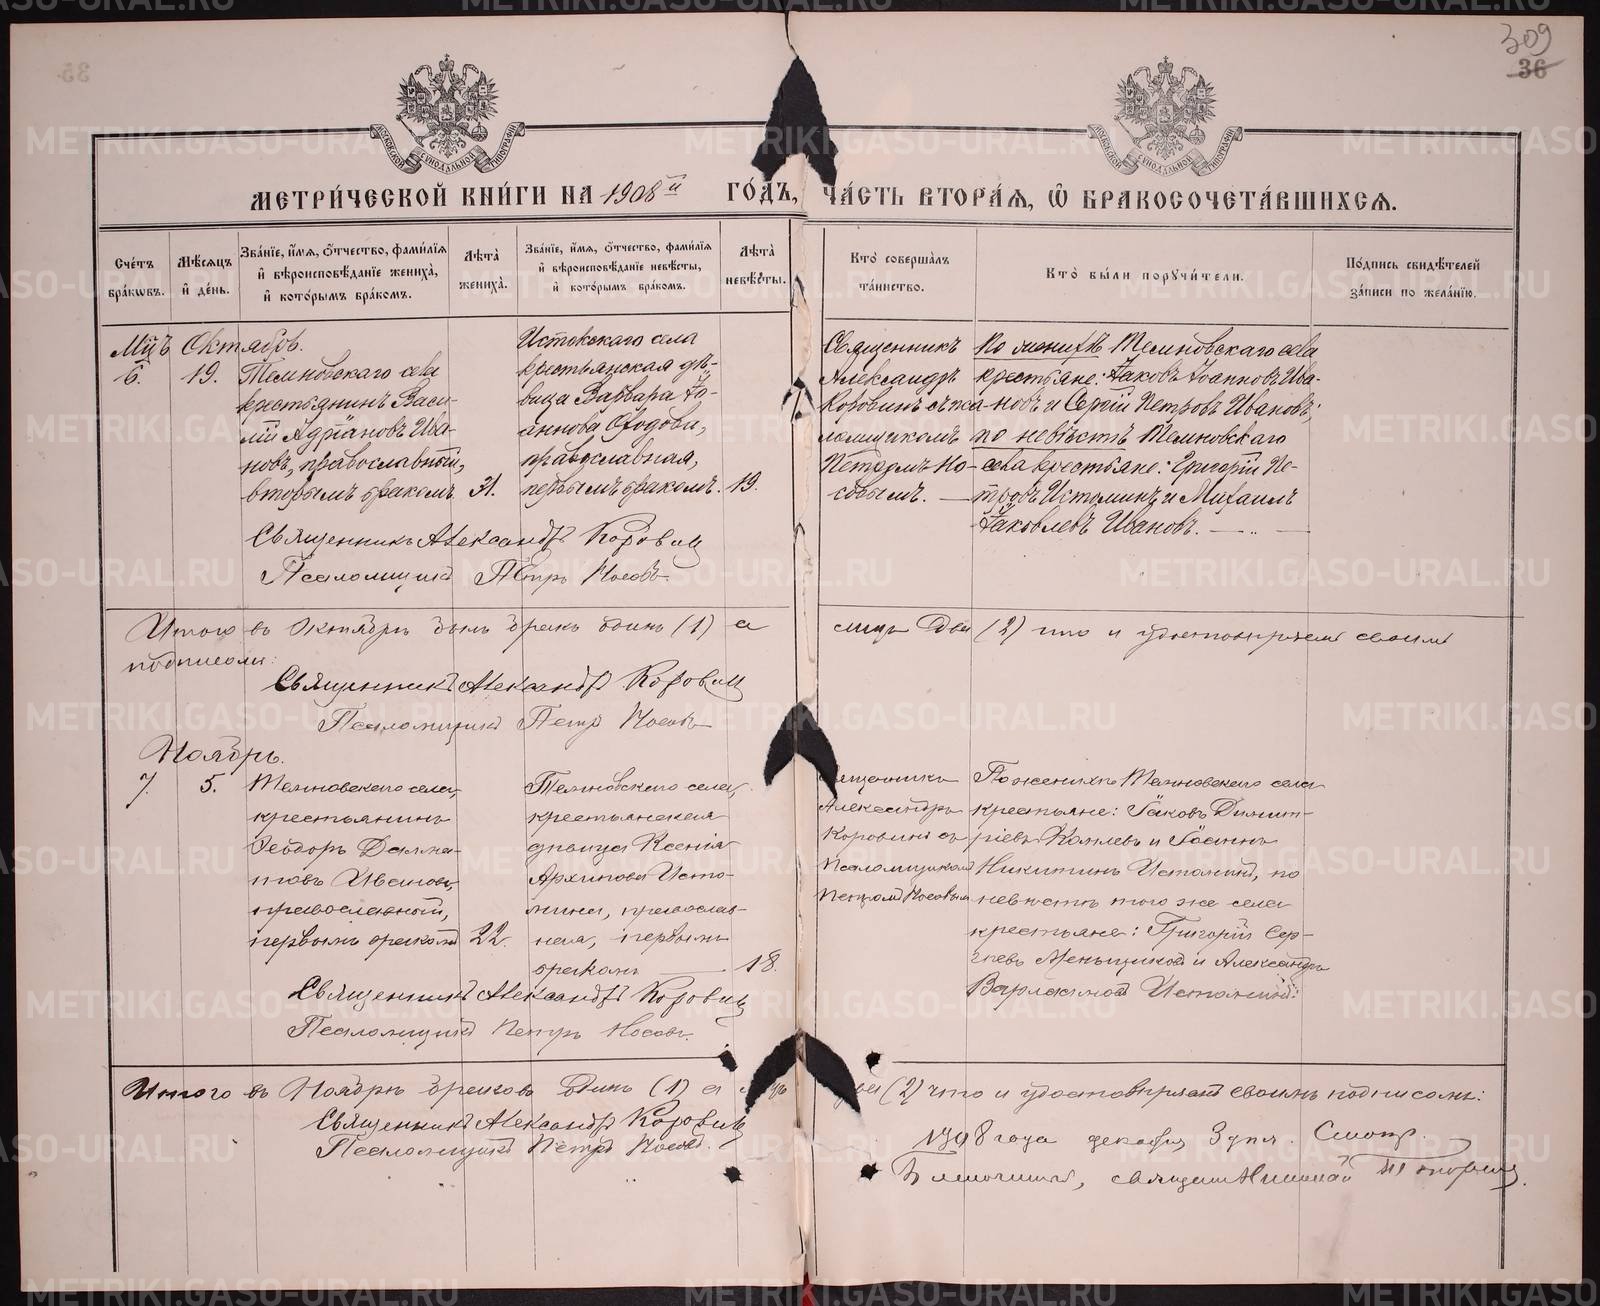 309
36
МОСКОВСКОЙ СѴНОДАЛЬНОЙ ТИПОГРАФІИ
МОСКОВСКОЙ СѴНОДАЛЬНОЙ ТИПОГРАФІИ
МЕТРИ́ЧЕСКОЙ КНИ́ГИ НА 1908й ГО́ДЪ, ЧА́СТЬ ВТОРА́Ѧ, Ѽ БРАКОСОЧЕТА́ВШИХСѦ.
Сче́тъ бра́кѡвъ.
Мѣ́сѧцъ и҆ де́нь.
Зва́нїе, и҆́мѧ, ѻ҆́тчество, фами́лїѧ и҆ вѣроисповѣ́данїе жениха̀, и҆ кото́рымъ бра́комъ.
Лѣ́та жениха̀.
Зва́нїе, и҆́мѧ, ѻ҆́тчество, фами́лїѧ и҆ вѣроисповѣ́данїе невѣ́сты, и҆ кото́рымъ бра́комъ.
Лѣ́та невѣ́сты.
Кто̀ соверша́лъ та́инство.
Кто̀ бы́ли поручи́тели.
По́дпись свидѣ́телей за́писи по жела́нїю.
Мцъ Октябрь.
6.
19.
Темновскаго села
крестьянинъ Васи-
лій Адріановъ Ива-
новъ, православный,
вторымъ бракомъ.
31.
Истокскаго села
крестьянская дѣ-
вица Варвара Іо-
аннова
православная,
первымъ бракомъ.
19.
Священникъ
Александръ
Коровинъ съ пса-
ломщикомъ
Петромъ Но-
совымъ.
По женихѣ Темновскаго села
крестьяне: Іаковъ Іоанновъ Ива-
новъ и Сергій Петровъ Ивановъ;
по невѣстѣ Темновскаго
села крестьяне: Григорій Пе-
тровъ Истоминъ и Михаилъ
Іаковлевъ Ивановъ.
Священникъ Александръ Коровинъ
Псаломщикъ Петръ Носовъ
Итого въ Октябрѣ былъ бракъ одинъ (1) а лицъ два (2) что и удостовѣряемъ своимъ
подписомъ:
Священникъ Александръ Коровинъ
Псаломщикъ Петръ Носовъ
Ноябрь.
7.
5.
Темновскаго села,
крестьянинъ
Ѳеодоръ Далма-
товъ Ивановъ,
православный,
первымъ бракомъ
22.
Темновскаго села,
крестьянская
дѣвица Ксенія
Архипова Исто-
мина, православ-
ная, первымъ
бракомъ
18.
Священникъ
Александръ
Коровинъ съ
Псаломщикомъ
Петромъ Носовымъ
По женихѣ Темновскаго села
крестьяне: Іаковъ Димит-
ріевъ и Іоаннъ
Никитинъ Истоминъ, по
невѣстѣ того же села
крестьяне: Григорій Сер-
гѣевъ Меньщиковъ и Александръ
Варлаамовъ Истоминъ.
Священникъ Александръ Коровинъ
Псаломщикъ Петръ Носовъ.
Итого въ Ноябрѣ браковъ одинъ (1) а лицъ два (2) что и удостовѣряемъ своимъ подписомъ:
Священникъ Александръ Коровинъ
Псаломщикъ Петръ Носовъ.
1908 года декабря 3 дня. Смотр.
Благочинный, священникъ Николай
METRIKI.GASO-URAL.RU